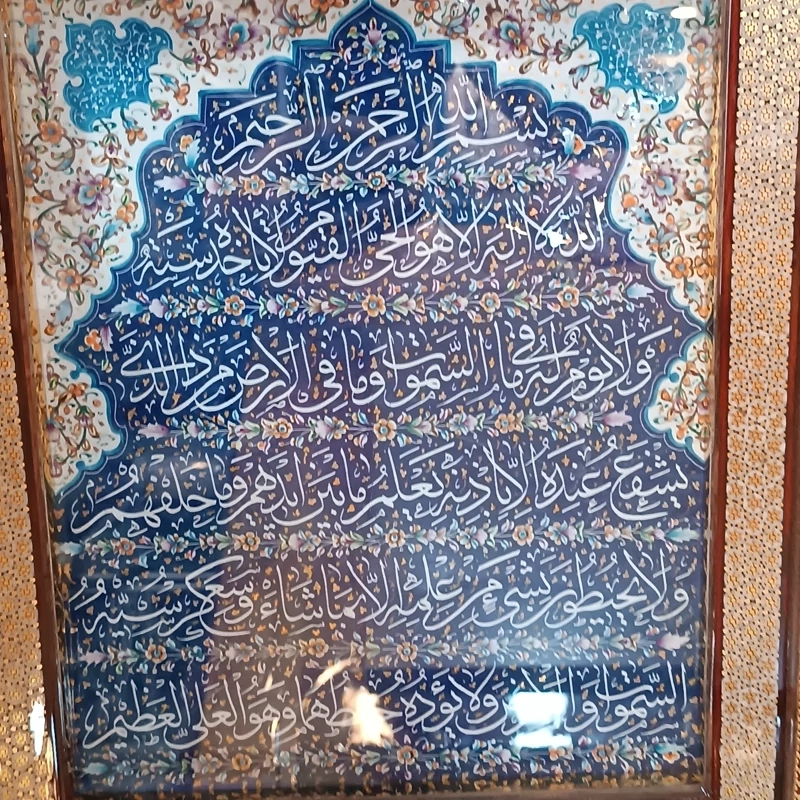 بسم الله الرحمن الرحيم
الله لا اله الا هو الحي القيوم لا تأخذه سنة
ولا نوم له ما في السموات وما في الارض من ذا الذي
يشفع عنده الا باذنه يعلم ما بين ايديهم وما خلفهم
ولا يحيطون بشيء من علمه الا بما شاء وسع كرسيه
السموات والارض ولا يؤده حفظهما وهو العلي العظيم